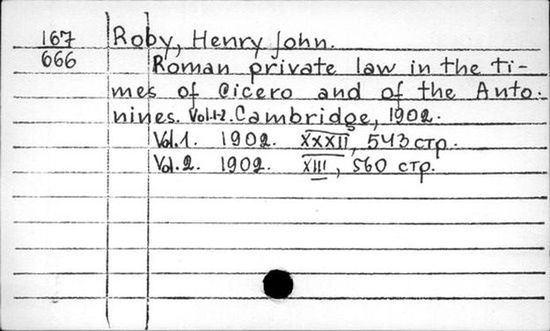 167 Roby, Henry John.
666 Roman private law in the ti-
mes of Cicero and of the Anto-
nines. Vol.1-2. Cambridge, 1902.
Vol.1. 1902. XXXII, 543 стр.
Vol.2. 1902. XIII, 560 стр.